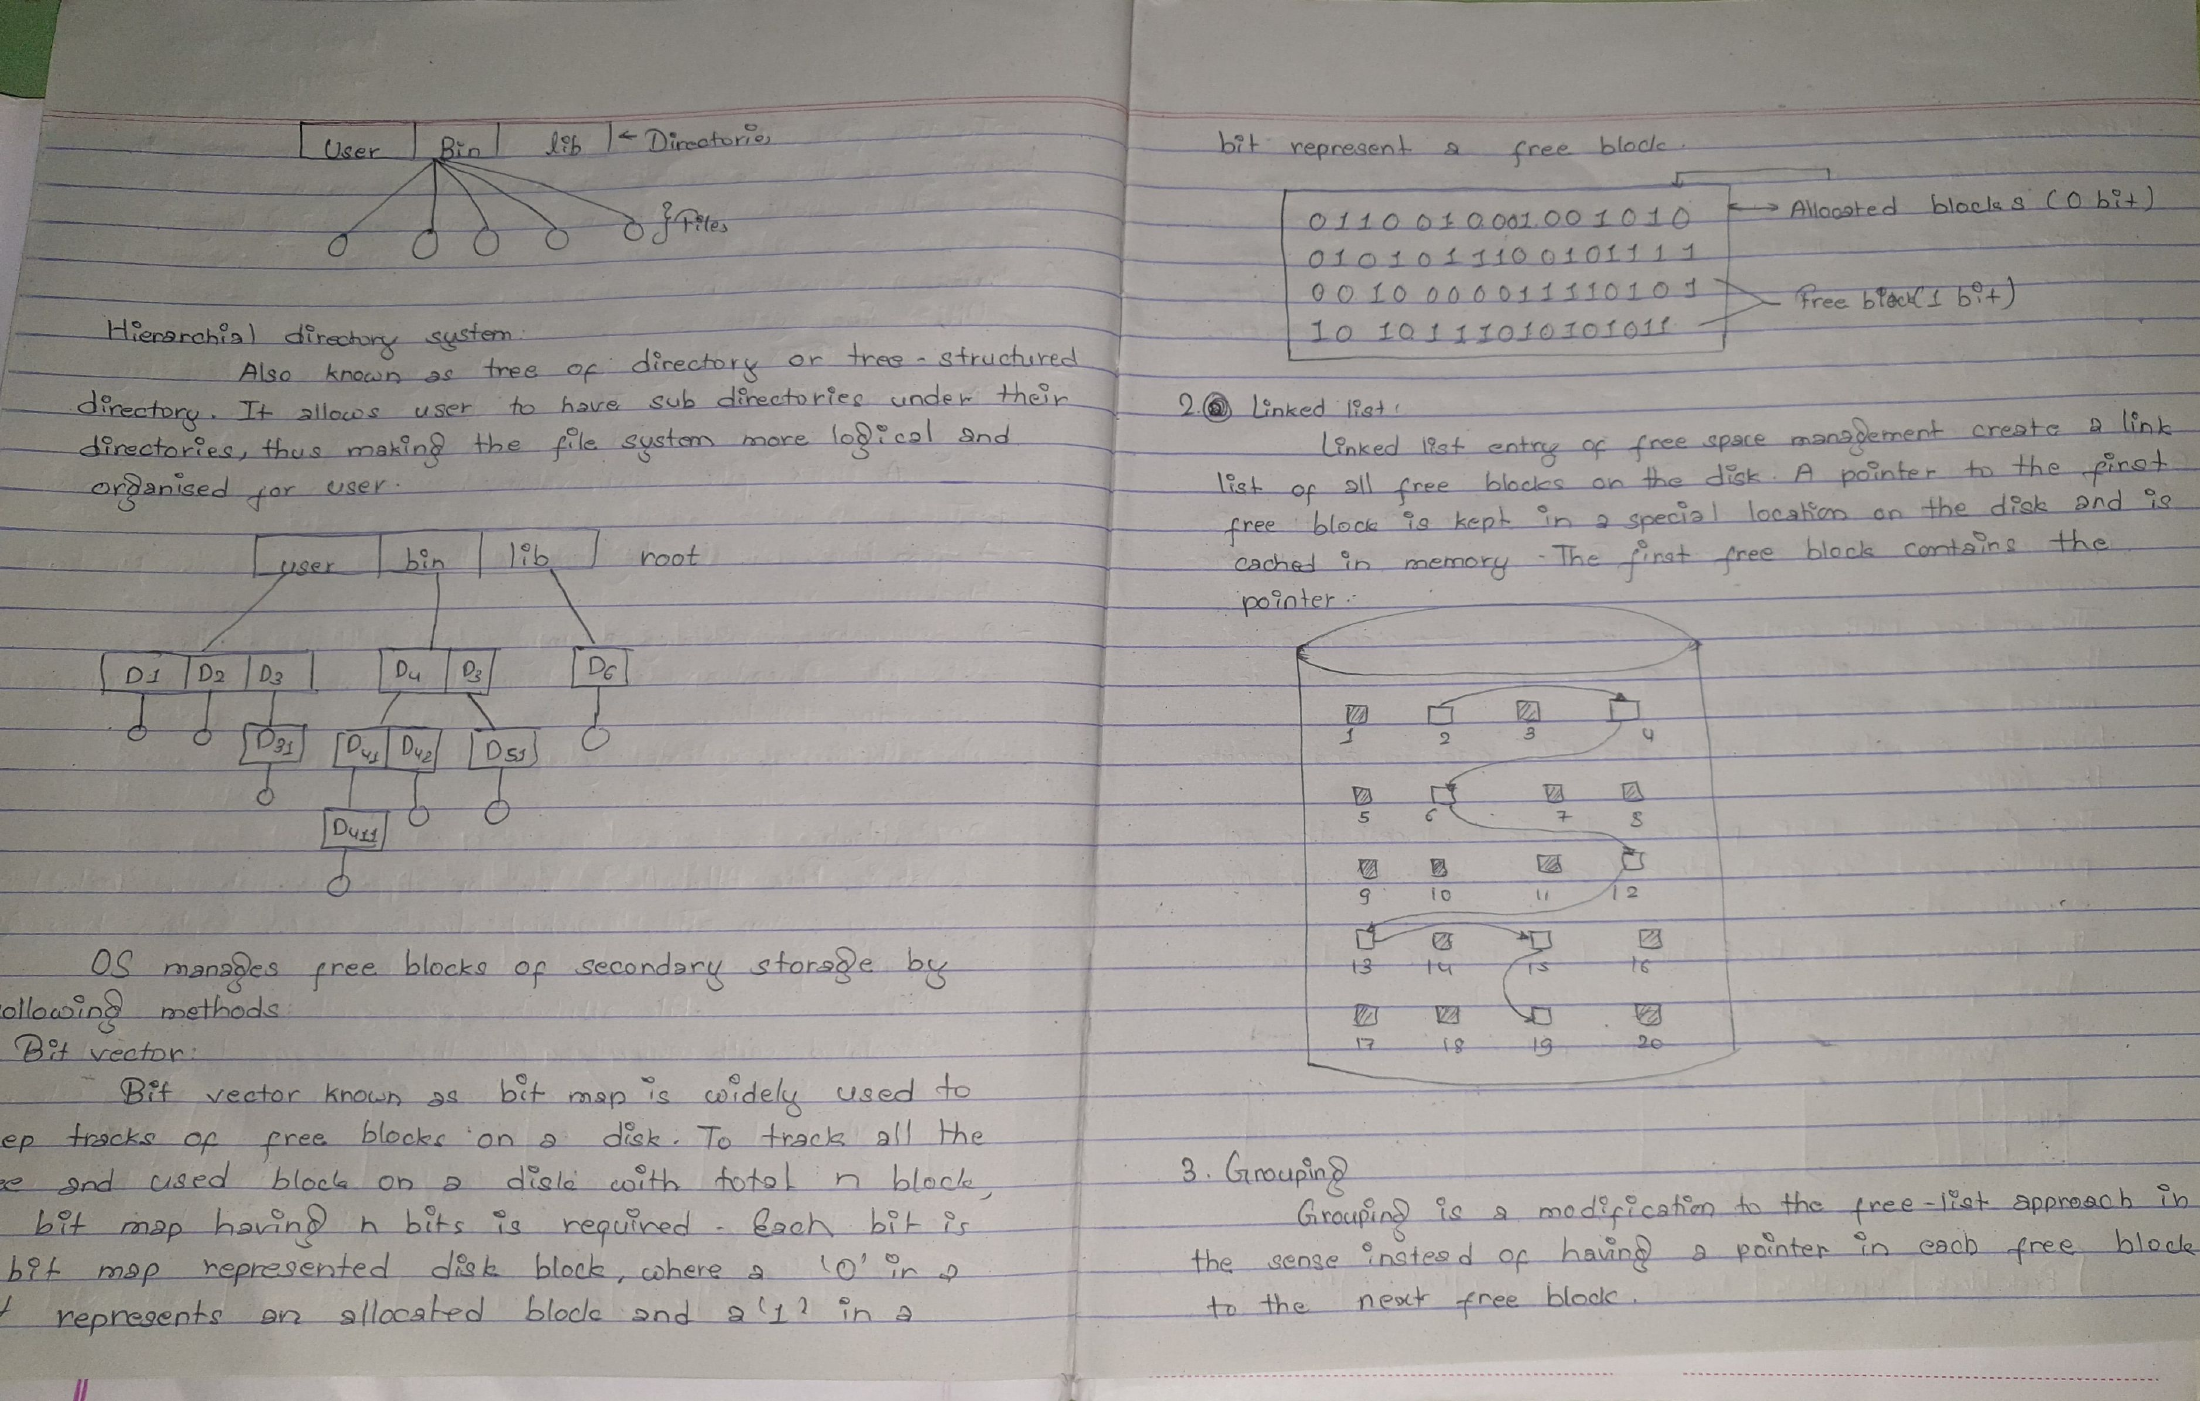 User Bin lib ← Directories
} Files
Hierarchial directory system:
Also known as tree of directory or tree-structured
directory. It allows user to have sub directories under their
directories, thus making the file system more logical and
organised for user.
user bin lib root
D1 D2 D3 D4 D3 D6
D31 D41 D42 D51
D411
OS manages free blocks of secondary storage by
ollowing methods:
Bit vector:
Bit vector known as bit map is widely used to
ep tracks of free blocks on a disk. To track all the
ee and used block on a disk with total n block,
bit map having n bits is required. Each bit is
bit map represented disk block, where a '0' in a
t represents an allocated block and a '1' in a
bit represent a free block.
0110010001001010 Allocated blocks (0 bit)
0101011100101111
0010000011110101 Free block(1 bit)
1010111010101011
2. Linked list:
Linked list entry of free space management create a link
list of all free blocks on the disk. A pointer to the first
free block is kept in a special location on the disk and is
cached in memory. The first free block contains the
pointer.
1 2 3 4
5 6 7 8
9 10 11 12
13 14 15 16
17 18 19 20
3. Grouping
Grouping is a modification to the free-list approach in
the sense instead of having a pointer in each free block
to the next free block.